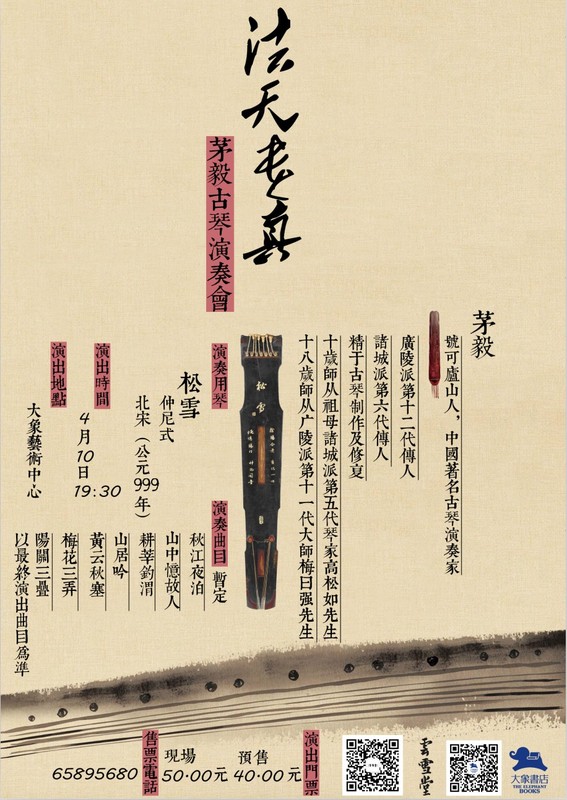 法天貴真
茅毅古琴演奏會
茅毅
號可廬山人，中國著名古琴演奏家
廣陵派第十二代傳人
諸城派第六代傳人
精于古琴制作及修夏
十歲師从祖母諸城派第五代琴家高松如先生
十八歲師从广陵派第十一代大師梅曰强先生
松雪
演奏用琴
松雪
仲尼式
北宋（公元999年）
演奏曲目 暫定
秋江夜泊
山中憶故人
耕莘釣渭
山居吟
黃云秋塞
梅花三弄
陽關三疊
以最終演出曲目爲準
演出時間
4月10日
19:30
演出地點
大象藝術中心
演出門票
預售 40·00元
現場 50·00元
售票電話
65895680
雲雪堂
大象書店
THE ELEPHANT BOOKS